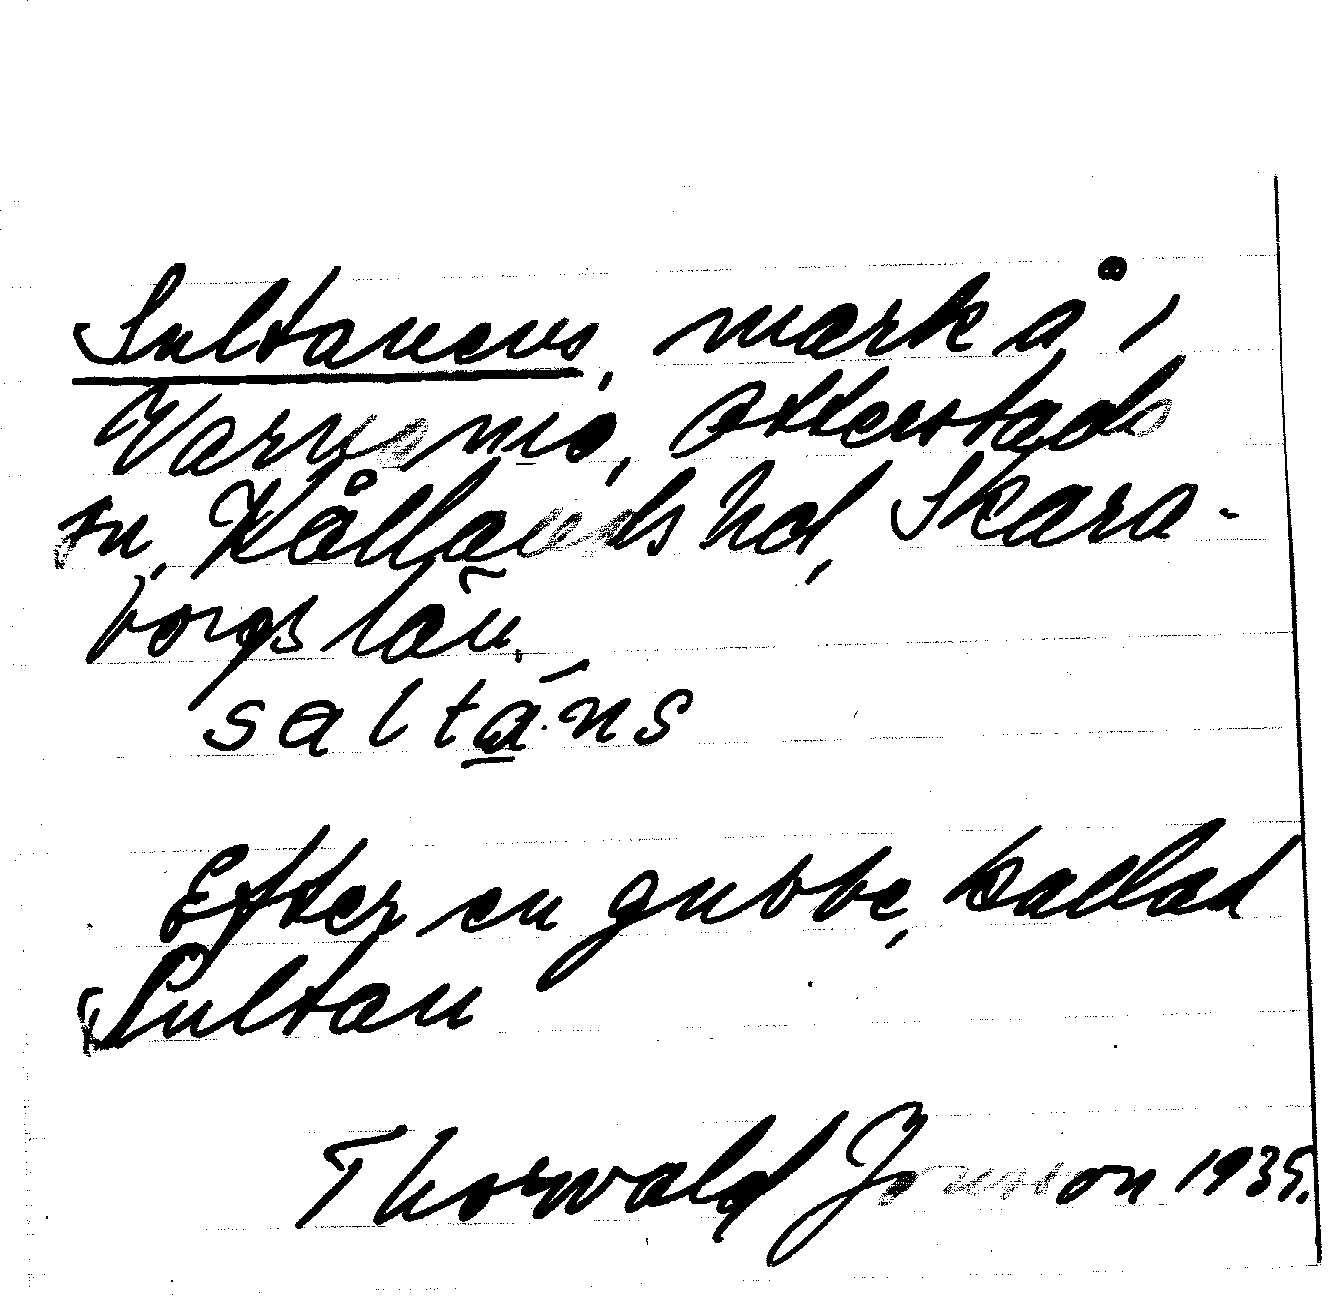 Sultanens, mark å i
Varnsnäs, Otterstads
sn, Kållands hd, Skara-
borgs län.
saltá̱·ns
Efter en gubbe, kallad
Sultan
Thorwald Jonsson 1935.